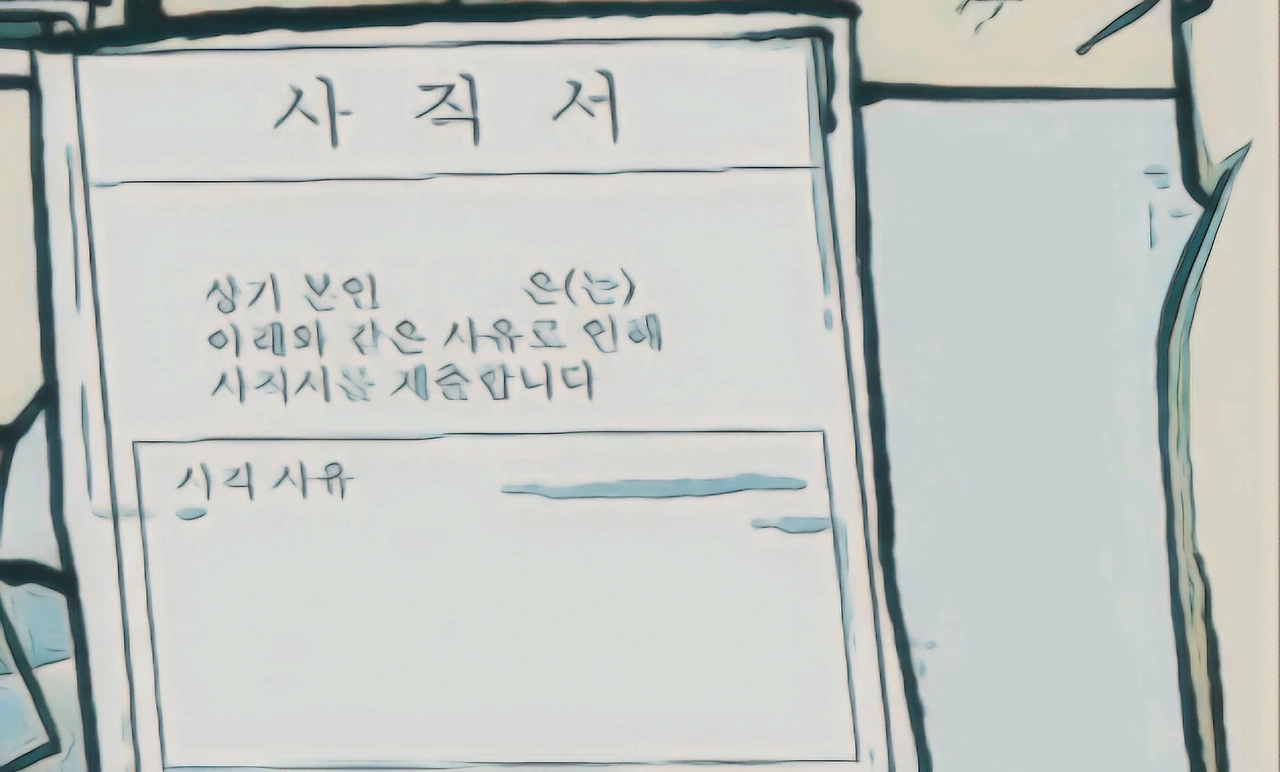 사 직 서
상기 본인 은(는)
아래와 같은 사유로 인해
사직서를 제출합니다
사직 사유